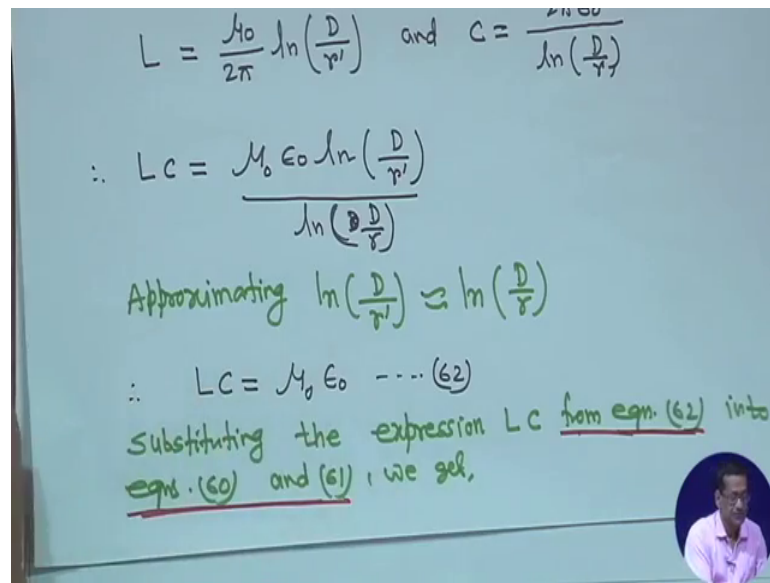 L = μ₀/2π ln(D/r') and C = 2πε₀/ln(D/r)
∴ LC = μ₀ ε₀ ln(D/r') / ln(D/r)
Approximating ln(D/r') ≃ ln(D/r)
∴ LC = μ₀ ε₀ ----(62)
Substituting the expression LC from eqn. (62) into
eqns. (60) and (61), we get,